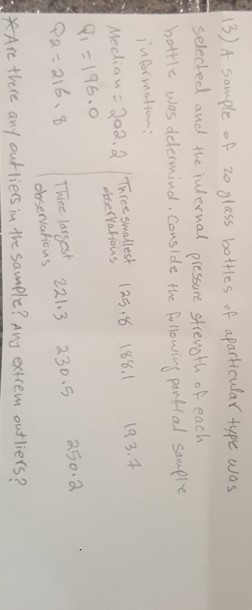 13) A sample of 20 glass bottles of aparticular type was
selected and the internal pressure strength of each
bottle was determind. Conside the following partial sample
information:
Median = 202.2
Q1 = 196.0
Q2 = 216.8
Three smallest observations 125.8 188.1 193.7
Three largest observations 221.3 230.5 250.2
* Are there any outliers in the sample? Any extrem outliers?